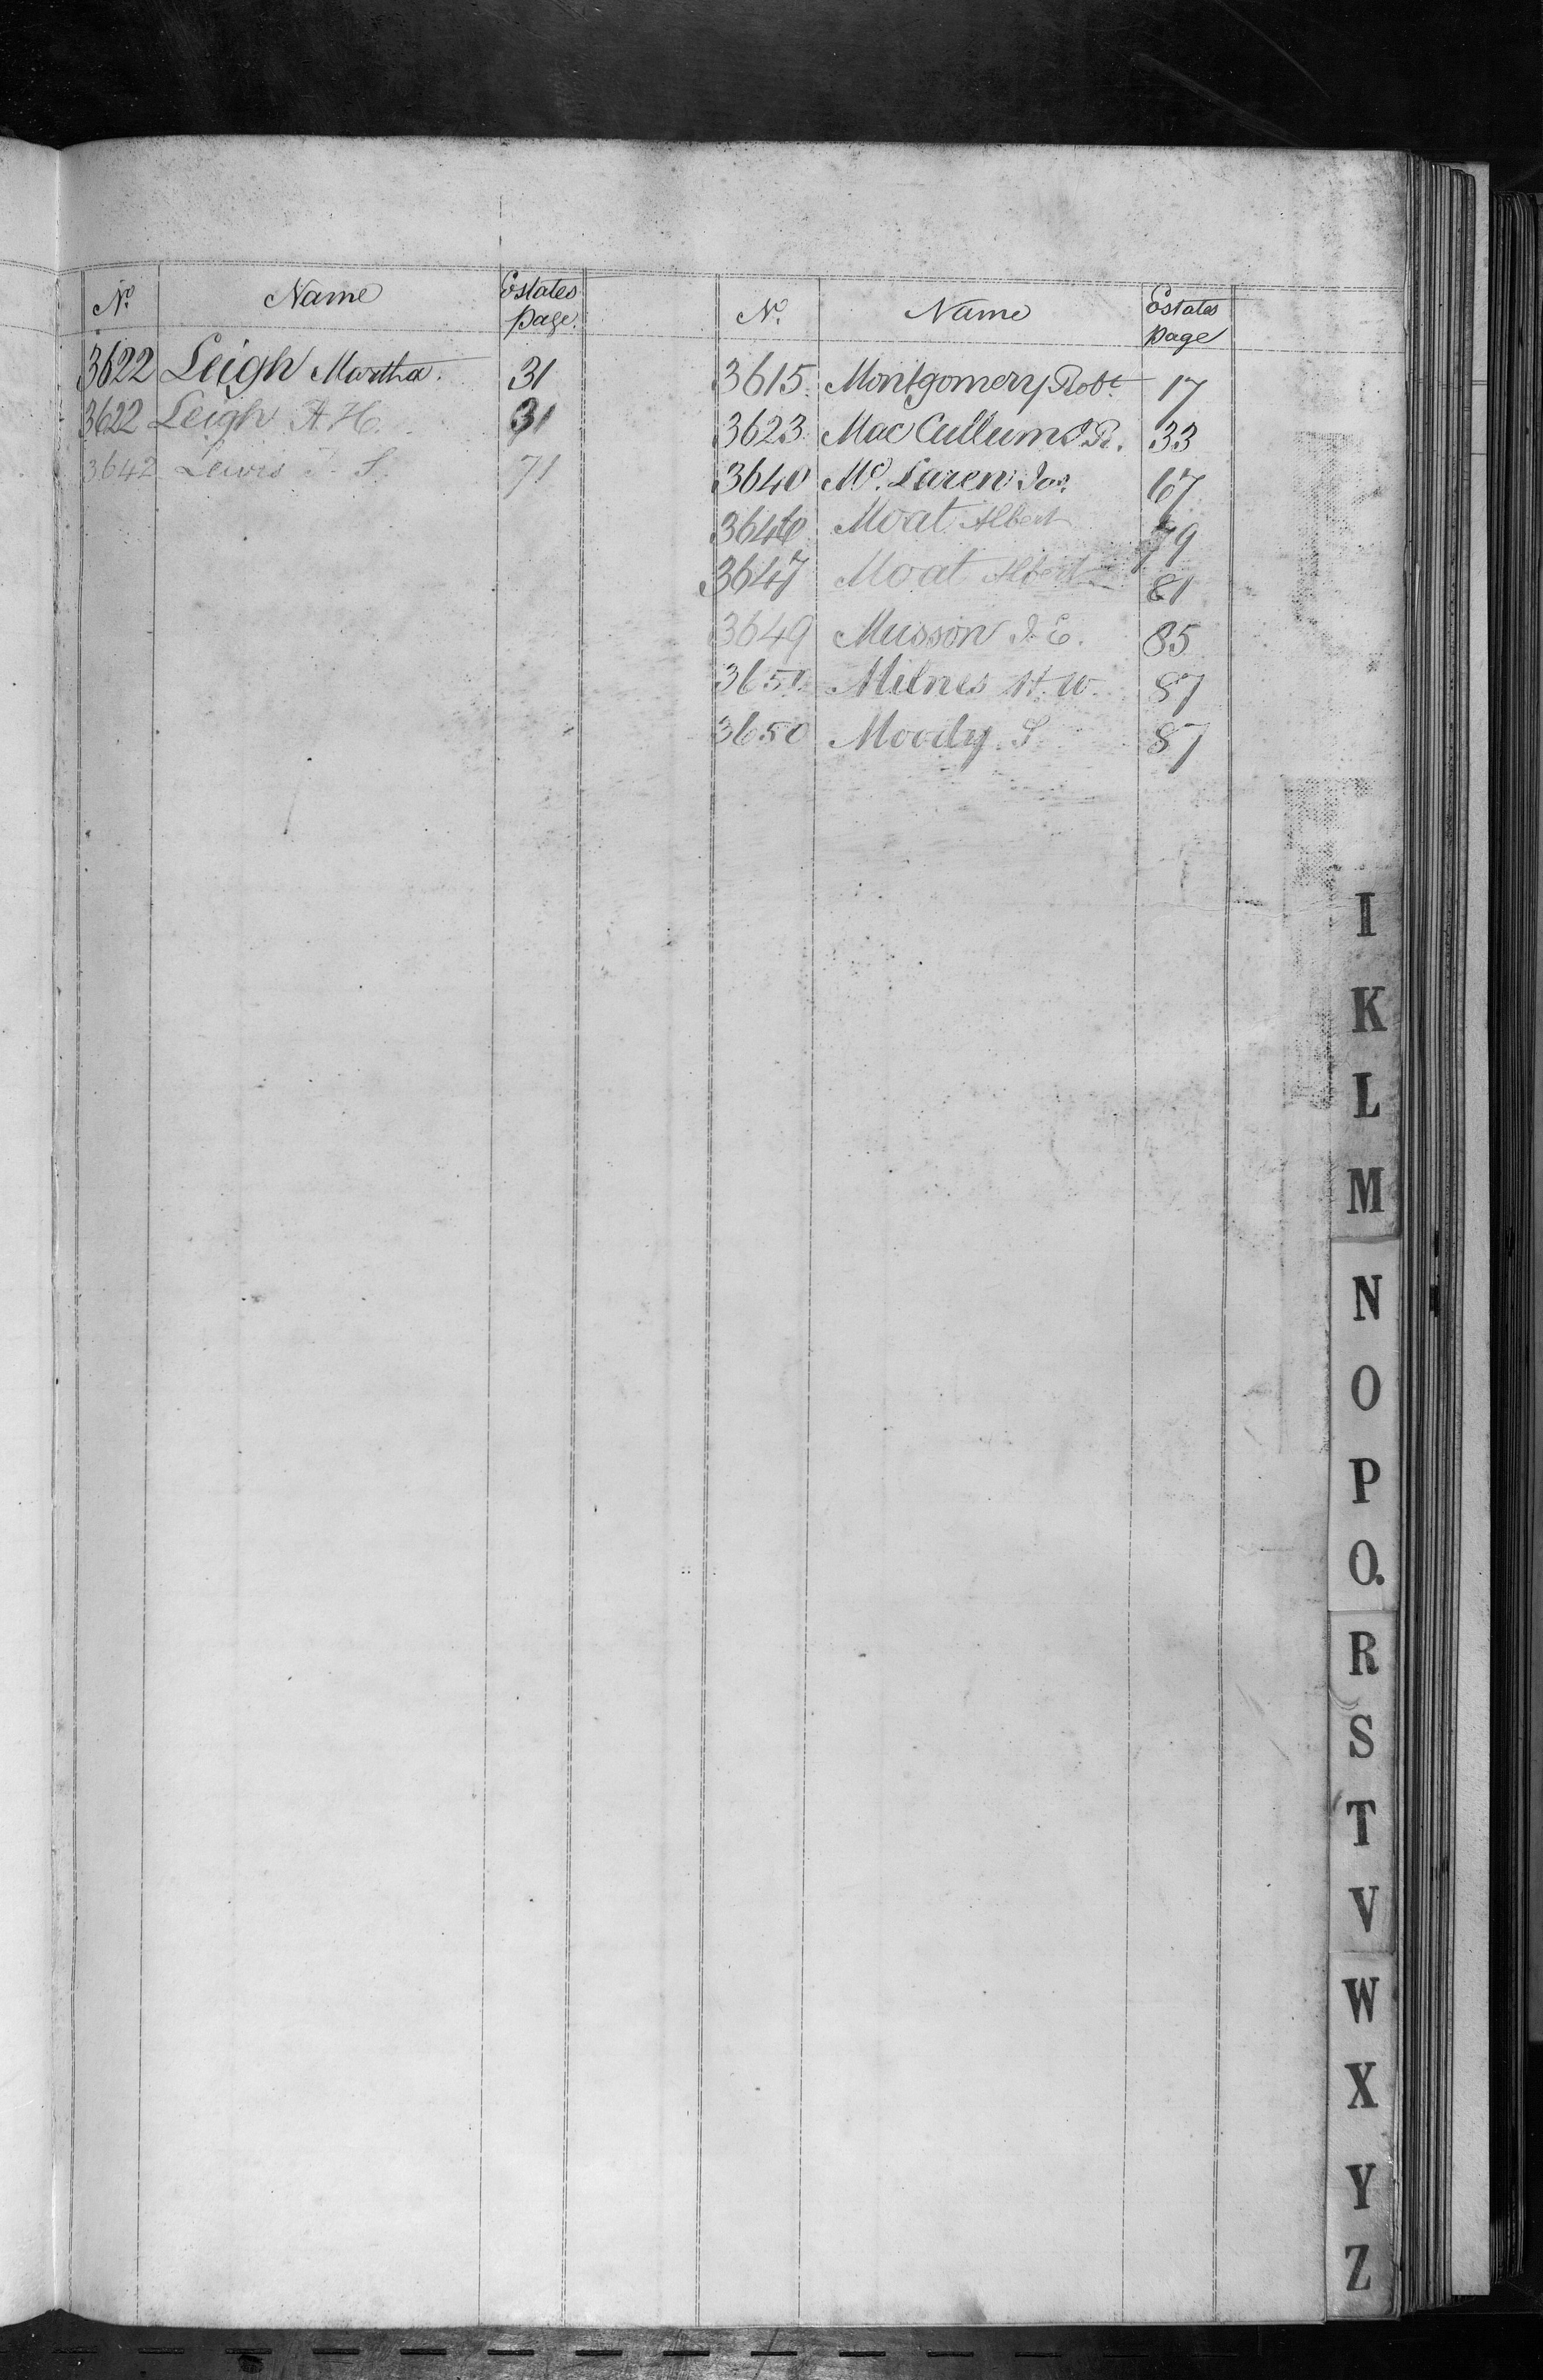 No. Name Estates page.
3622 Leigh Martha. 31
3622 Leigh A. H. 31
3642 Lewis S. 71
No. Name Estates page
3615. Montgomery Robt. 17
3623 Mac Cullum J. R. 33
3640 Mc. Laren Jas. 67
3646 Moat Albert 79
3647 Moat Albert 81
3649 Musson J. E. 85
3651 Milnes H. W. 87
3650 Moody. S 87
I
K
L
M
N
O
P
Q.
R
S
T
V
W
X
Y
Z